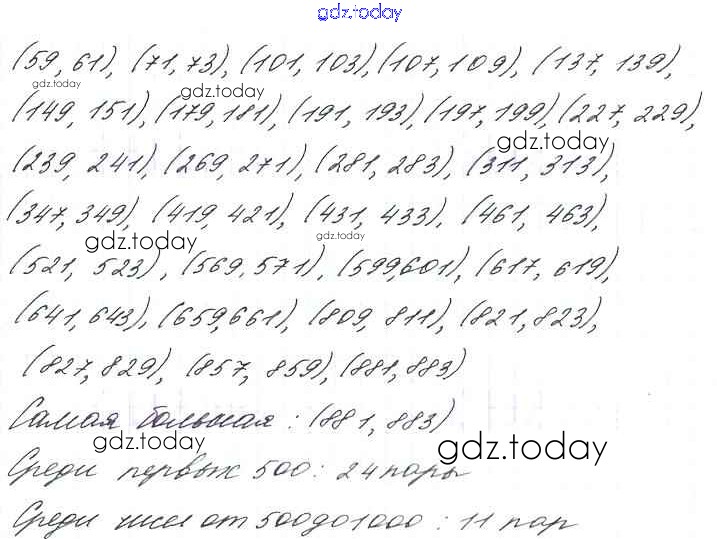 gdz.today
(59, 61), (71, 73), (101, 103), (107, 109), (137, 139),
gdz.today
gdz.today
(149, 151), (179, 181), (191, 193), (197, 199), (227, 229),
gdz.today
(239, 241), (269, 271), (281, 283), (311, 313),
(347, 349), (419, 421), (431, 433), (461, 463),
gdz.today
gdz.today
(521, 523), (569, 571), (599, 601), (617, 619),
(641, 643), (659, 661), (809, 811), (821, 823),
(827, 829), (857, 859), (881, 883)
Самая большая: (881, 883)
gdz.today
gdz.today
Среди первых 500: 24 пары
Среди чисел от 500 до 1000: 11 пар